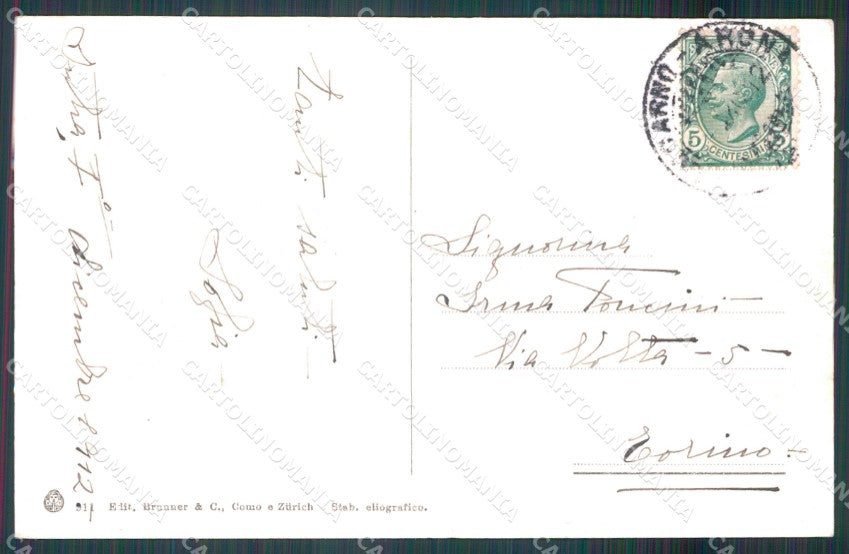 Intra 1º dicembre 1912
Tanti saluti
Sofia
Signorina
Irma
Via Volta - 5 -
Torino -
LOCARNO - ARONA
5
CENTESIMI
911 Edit. Brunner & C., Como e Zürich Stab. eliografico.
CARTOLINOMANIA